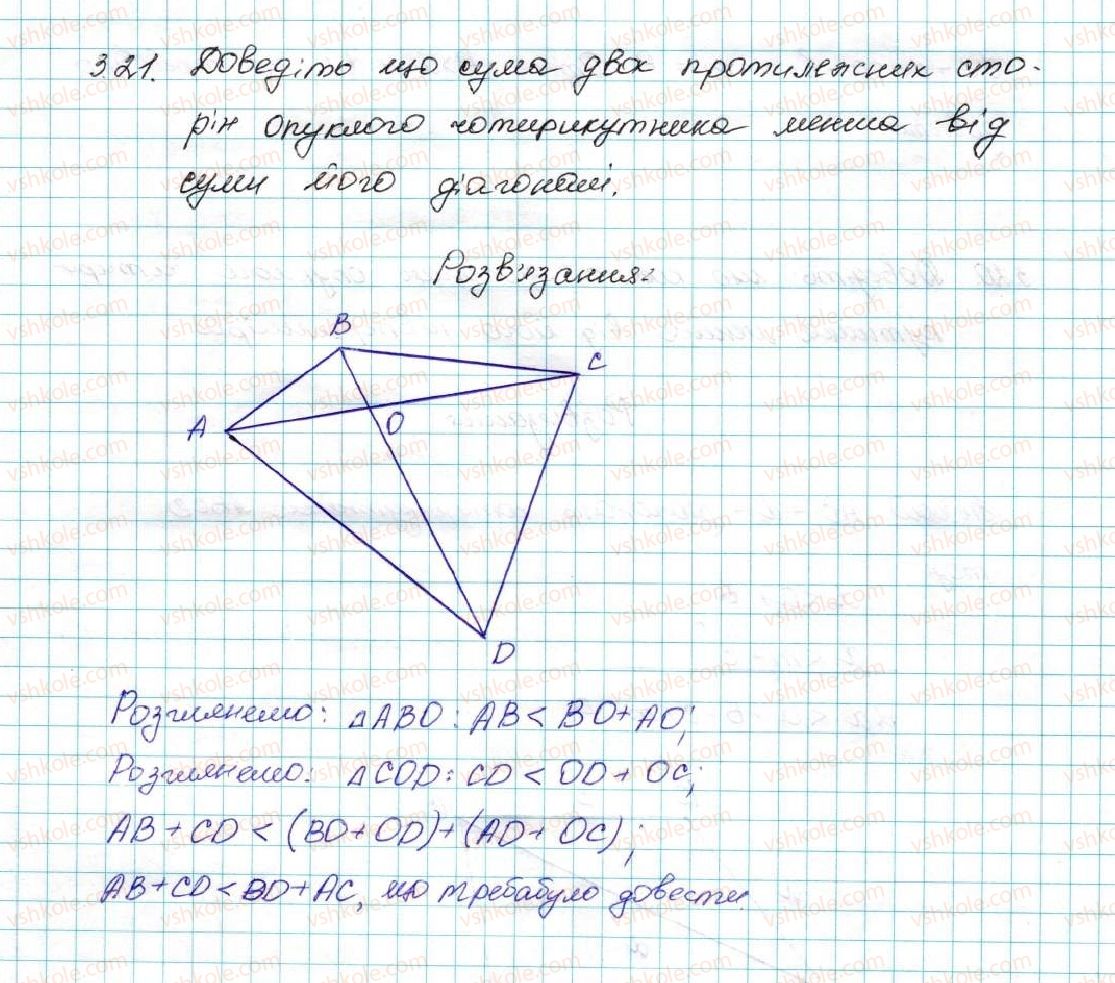 321. Доведіть що сума двох протилежних сто-
рін опуклого чотирикутника менша від
суми його діагоналі.
Розв'язання:
B
C
A
O
D
Розглянемо: △ABO: AB < BO + AO;
Розглянемо: △COD: CD < OD + OC;
AB + CD < (BO + OD) + (AO + OC);
AB + CD < BD + AC, що требабуло довести.
vshkole.com